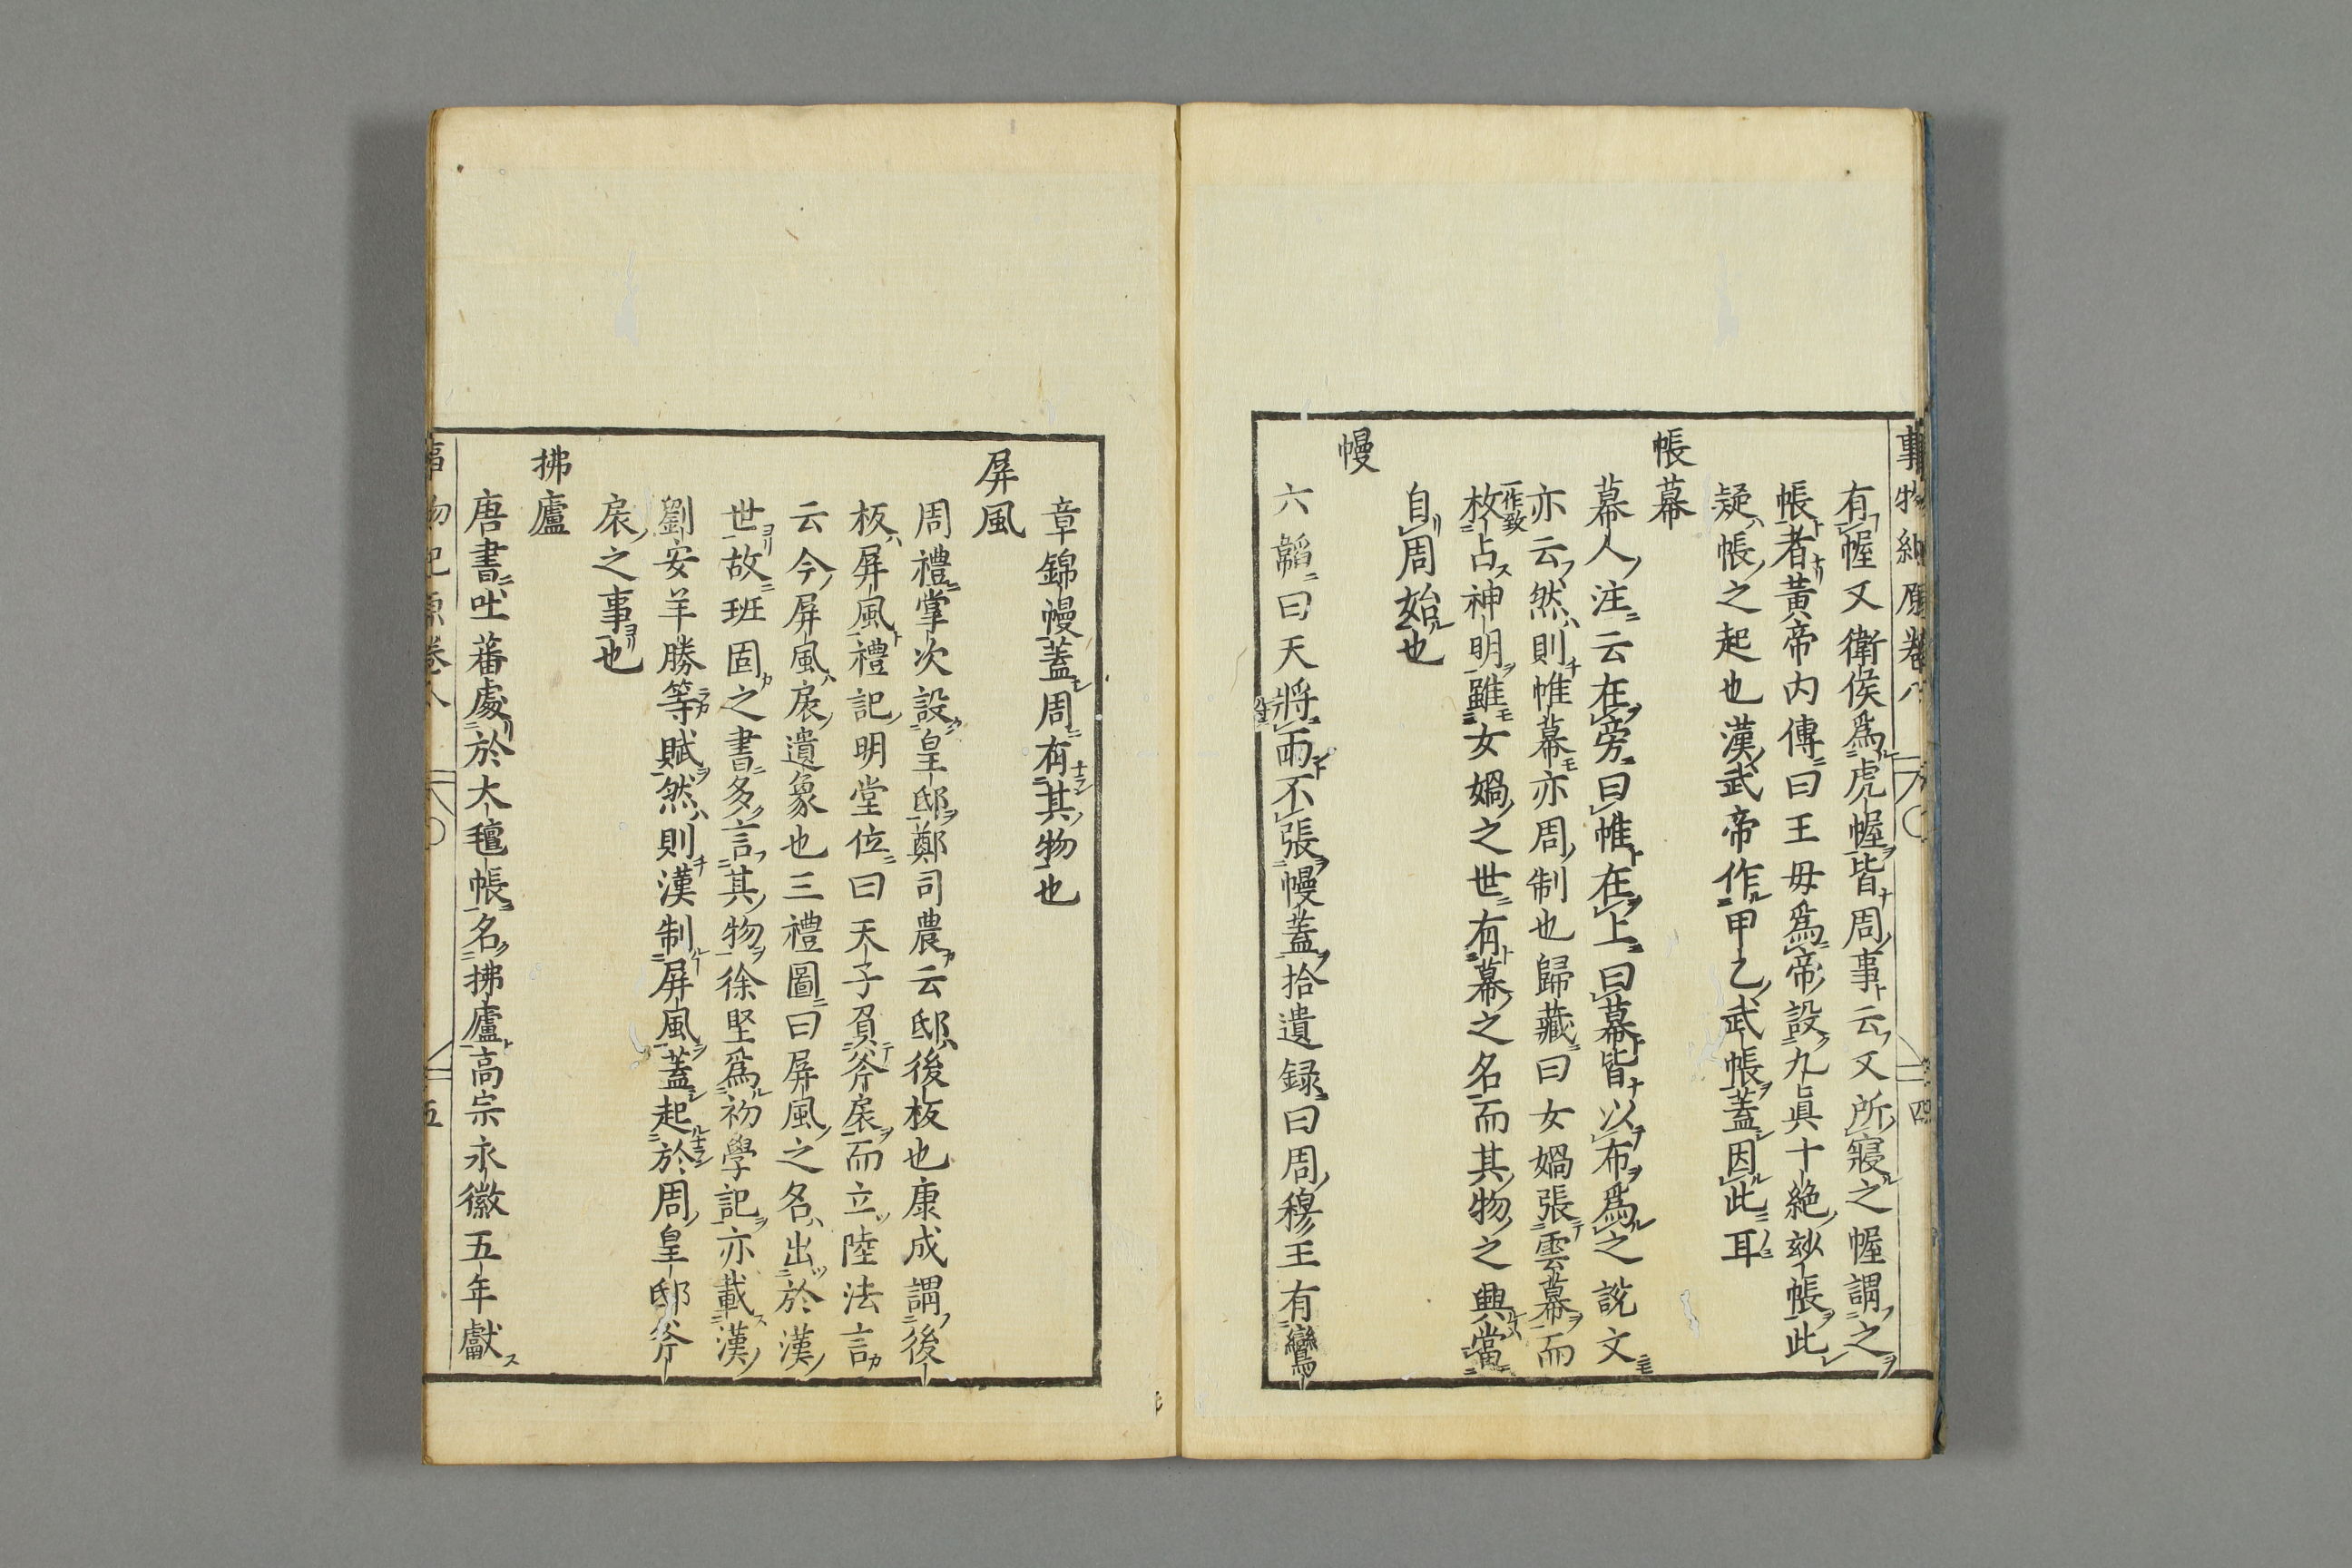 事物紀原卷八 四
有幄又衛侯爲虎幄皆周事云又所寢之幄謂之
帳者黃帝內傳曰王母爲帝設九眞十絶玅帳此
疑帳之起也漢武帝作甲乙武帳蓋因此耳
帳幕
幕人注云在旁曰帷在上曰幕皆以布爲之說文
亦云然則帷幕亦周制也歸藏曰女媧張雲幕而
枚一作致占神明雖女媧之世有幕之名而其物之興當
自周始也
幔
六韜曰天將雨不張幔蓋拾遺録曰周穆王有鸞
章錦幔蓋周有其物也
屏風
周禮掌次設皇邸鄭司農云邸後板也康成謂後
板屏風禮記明堂位曰天子負斧扆而立陸法言
云今屏風扆遺象也三禮圖曰屏風之名出於漢
世故班固之書多言其物徐堅爲初學記亦載漢
劉安羊勝等賦然則漢制屏風蓋起於周皇邸斧
扆之事也
拂廬
唐書吐蕃處於大氊帳名拂廬高宗永徽五年獻
事物紀原卷八 五